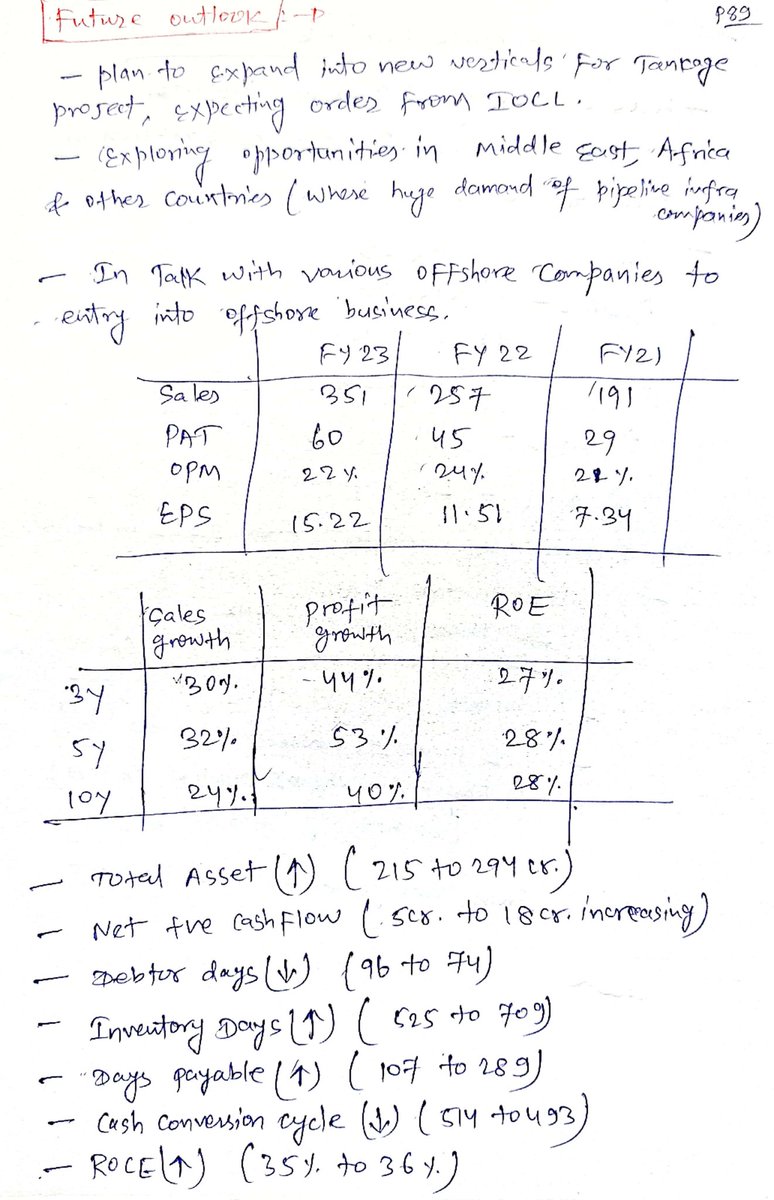 Future outlook :-
P89
- plan to expand into new verticals for Tankage
project, expecting order from IOCL.
- Exploring opportunities in Middle East, Africa
& other countries (where huge damand of pipeline infra
companies)
- In Talk with various offshore companies to
entry into offshore business.
FY 23 FY 22 FY21
Sales 351 257 191
PAT 60 45 29
OPM 22% 24% 21%
EPS 15.22 11.51 7.34
Sales growth Profit growth ROE
3Y 30% 44% 27%
5Y 32% 53% 28%
10Y 24% 40% 28%
- Total Asset (↑) (215 to 294 cr.)
- Net +ve cashflow (5cr. to 18cr. increasing)
- Debtor days (↓) (96 to 74)
- Inventory Days (↑) (525 to 709)
- Days payable (↑) (107 to 289)
- Cash conversion cycle (↓) (514 to 493)
- ROCE (↑) (35% to 36%)